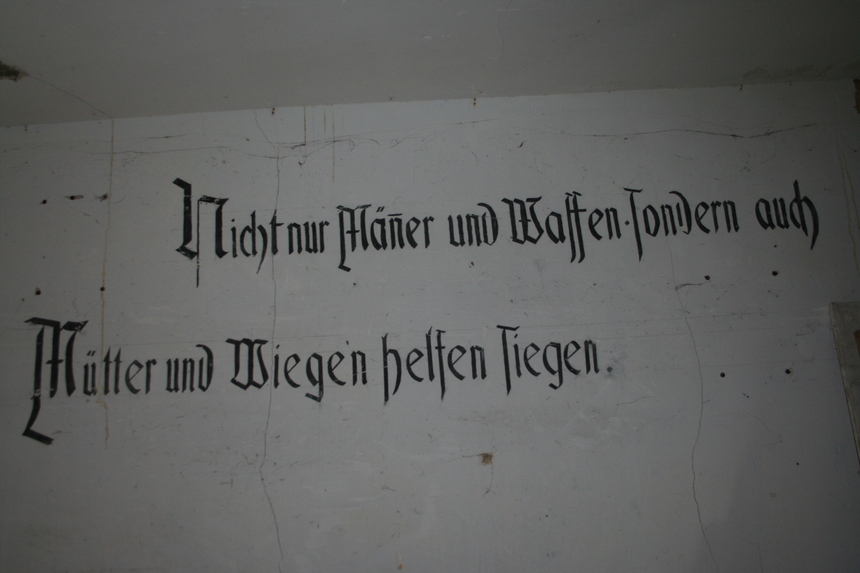 Nicht nur Män̄er und Waffen·sondern auch
Mütter und Wiegen helfen siegen.